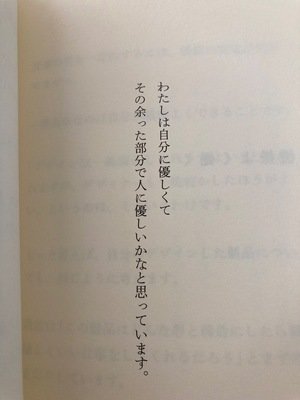 わたしは自分に優しくて
その余った部分で人に優しいかなと思っています。